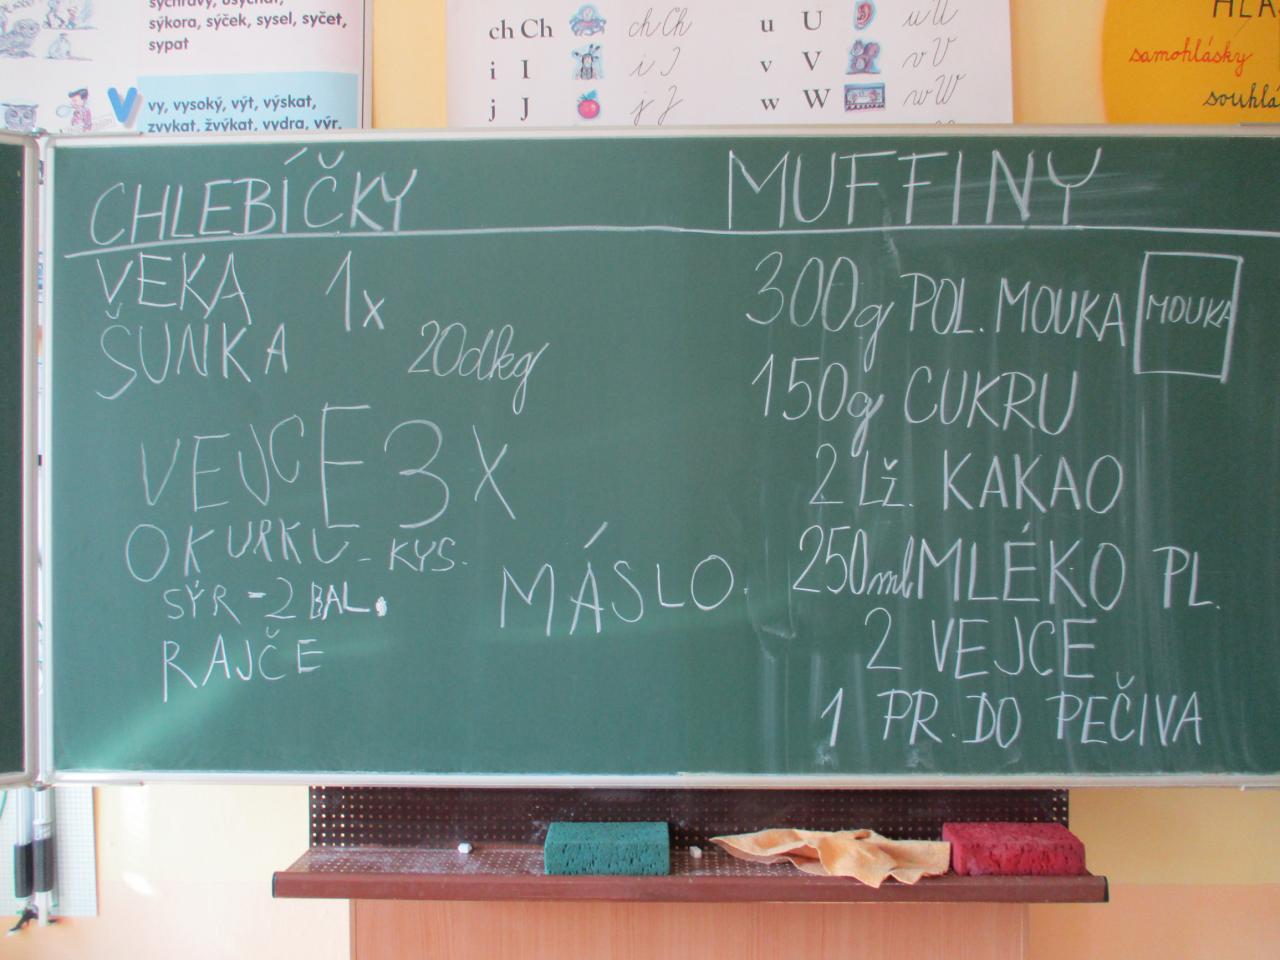 sychravý, usychat,
sýkora, sýček, sysel, syčet,
sypat
vy, vysoký, výt, výskat,
zvykat, žvýkat, vydra, výr,
ch Ch ch Ch
i I i I
j J j J
u U u U
v V v V
w W w W
HLÁ
samohlásky
souhlá
CHLEBÍČKY
VEKA 1x
ŠUNKA 20dkg
VEJCE 3X
OKURKU - KYS.
SÝR - 2 BAL.
RAJČE
MÁSLO.
MUFFINY
300g POL. MOUKA MOUKA
150g CUKRU
2 LŽ. KAKAO
250ml MLÉKO PL.
2 VEJCE
1 PR. DO PEČIVA